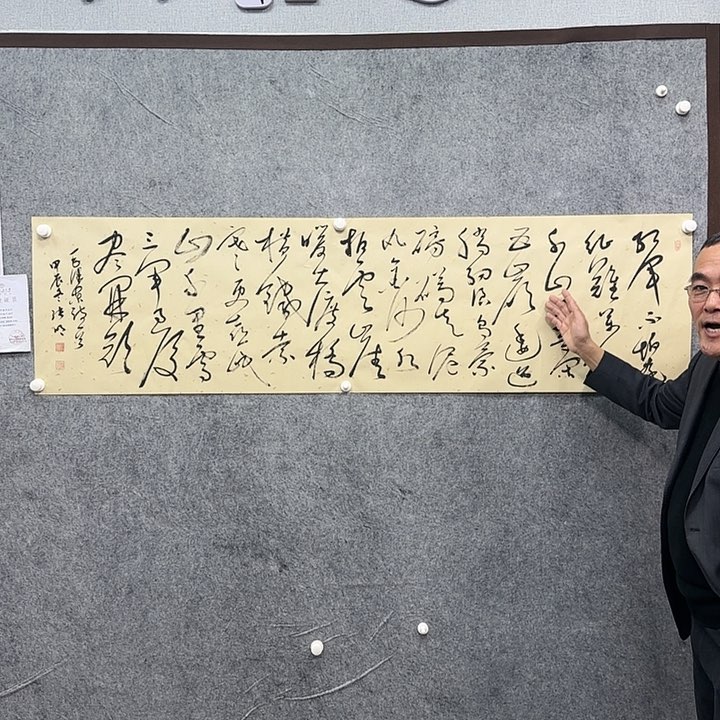 红军不怕远
征難萬水
千山 等闲
五嶺逶迤
腾细浪乌蒙
磅礴走泥
丸金沙水
拍云崖
暖大渡橋
横鐵索
寒更喜岷
山千里雪
三军过後
尽開颜
毛泽东诗一首
甲辰冬